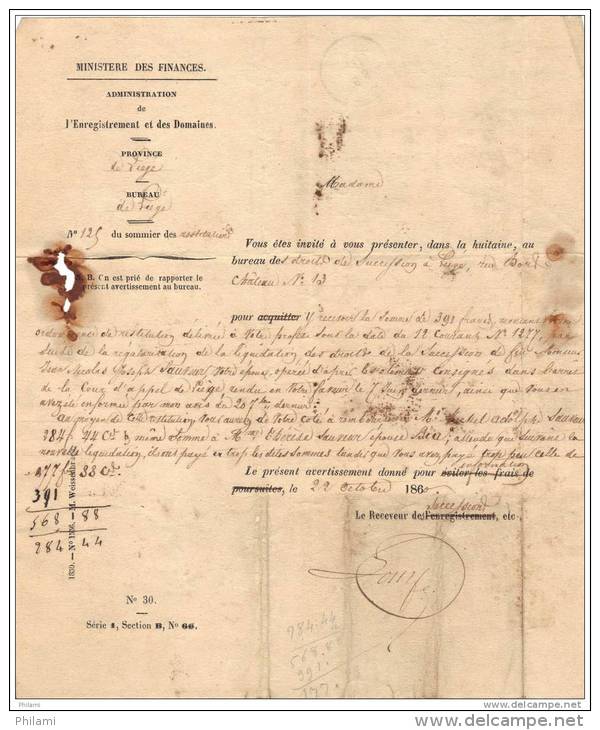 MINISTERE DES FINANCES.
ADMINISTRATION
de
l'Enregistrement et des Domaines.
PROVINCE
de Liége
BUREAU
de Liége
No 125 du sommier des restitutions
N. B. On est prié de rapporter le
présent avertissement au bureau.
Madame
Vous êtes invité à vous présenter, dans la huitaine, au
bureau des droits de Succession à Liége, rue
Château No 13
pour acquitter y recevoir la somme de 391 francs, montant
ordonnance de restitution délivrée à votre profit sous la date du 12 courant No 1277, par
suite de la régularisation de la liquidation des droits de la succession de feu Monsieur
Jean Nicolas Joseph Sauveur votre époux, opérée d'après consignés dans l'arrêt
de la Cour d'appel de Liége rendu en votre faveur le 7 Juin dernier, ainsi que vous en
avez été informée par mon avis du 20 7bre dernier.
Au moyen de cette restitution vous aurez de votre côté à rembourser à Mr Sauveur
284 fr 44 Cs & même somme à Thérèse Sauveur épouse attendu que suivant la
nouvelle liquidation, ils ont payé en trop les dites sommes tandis que vous avez payé trop peu celle de
177 88 Cs.
391
568 88
284 44
Le présent avertissement donné pour éviter les frais de information
poursuites, le 22 octobre 186
Succession
Le Receveur de l'enregistrement, etc.
1859. — No 1126. — M. Weissenbruch
No 30.
Série 1, Section B, No 66.
284.44
568.8
391.
177.
Philami
www.delcampe.net
Philami
www.delcampe.net